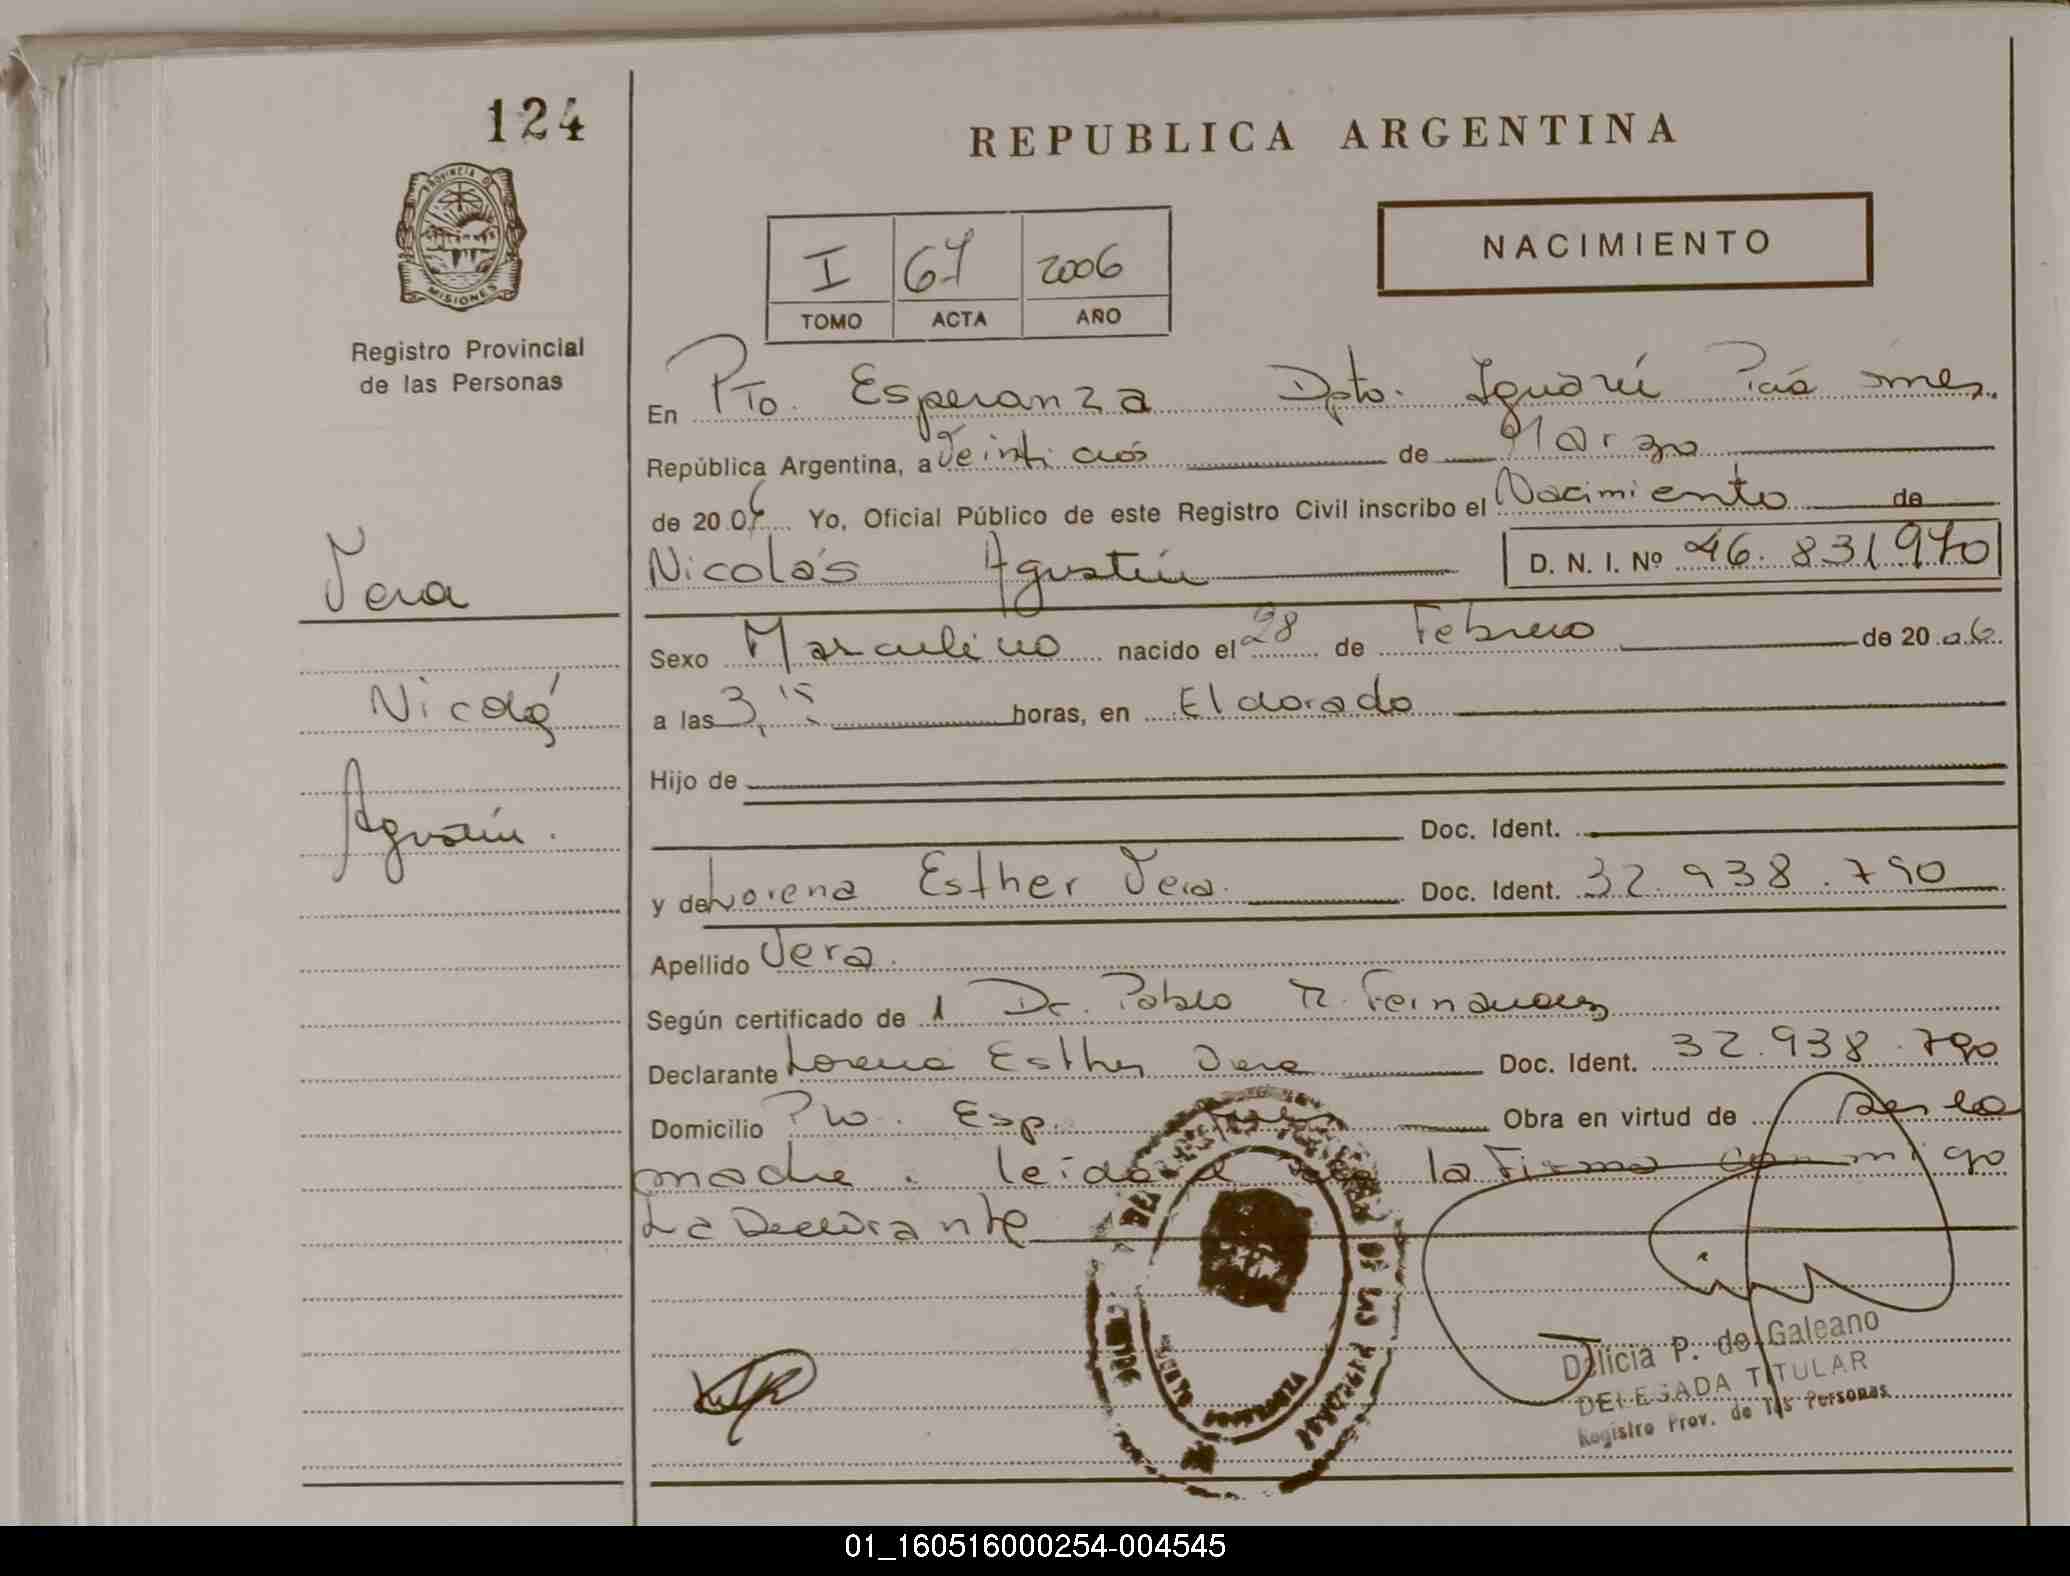 124
REPUBLICA ARGENTINA
PROVINCIA DE
MISIONES
Registro Provincial
de las Personas
NACIMIENTO
I 67 2006
TOMO ACTA AÑO
En Pto. Esperanza Dpto. Iguazú Pcia Mnes.
República Argentina, a Veintidós de Marzo
de 2006 Yo, Oficial Público de este Registro Civil inscribo el Nacimiento de
Nicolás Agustín D. N. I. Nº 46.831970
Vera
Nicolás
Agustín.
Sexo Masculino nacido el 28 de Febrero de 2006
a las 3,15 horas, en Eldorado
Hijo de
Doc. Ident.
y de Lorena Esther Vera. Doc. Ident. 32.938.790
Apellido Vera.
Según certificado de 1 Dr. Pablo R. Fernandez
Declarante Lorena Esther Vera Doc. Ident. 32.938.790
Domicilio Pto. Esp. Mnes Obra en virtud de ser la
madre. leída el acta la Firma conmigo
La Declarante
DE LAS PERSONAS
Delicia P. de Galeano
DELEGADA TITULAR
Registro Prov. de las Personas
01_160516000254-004545